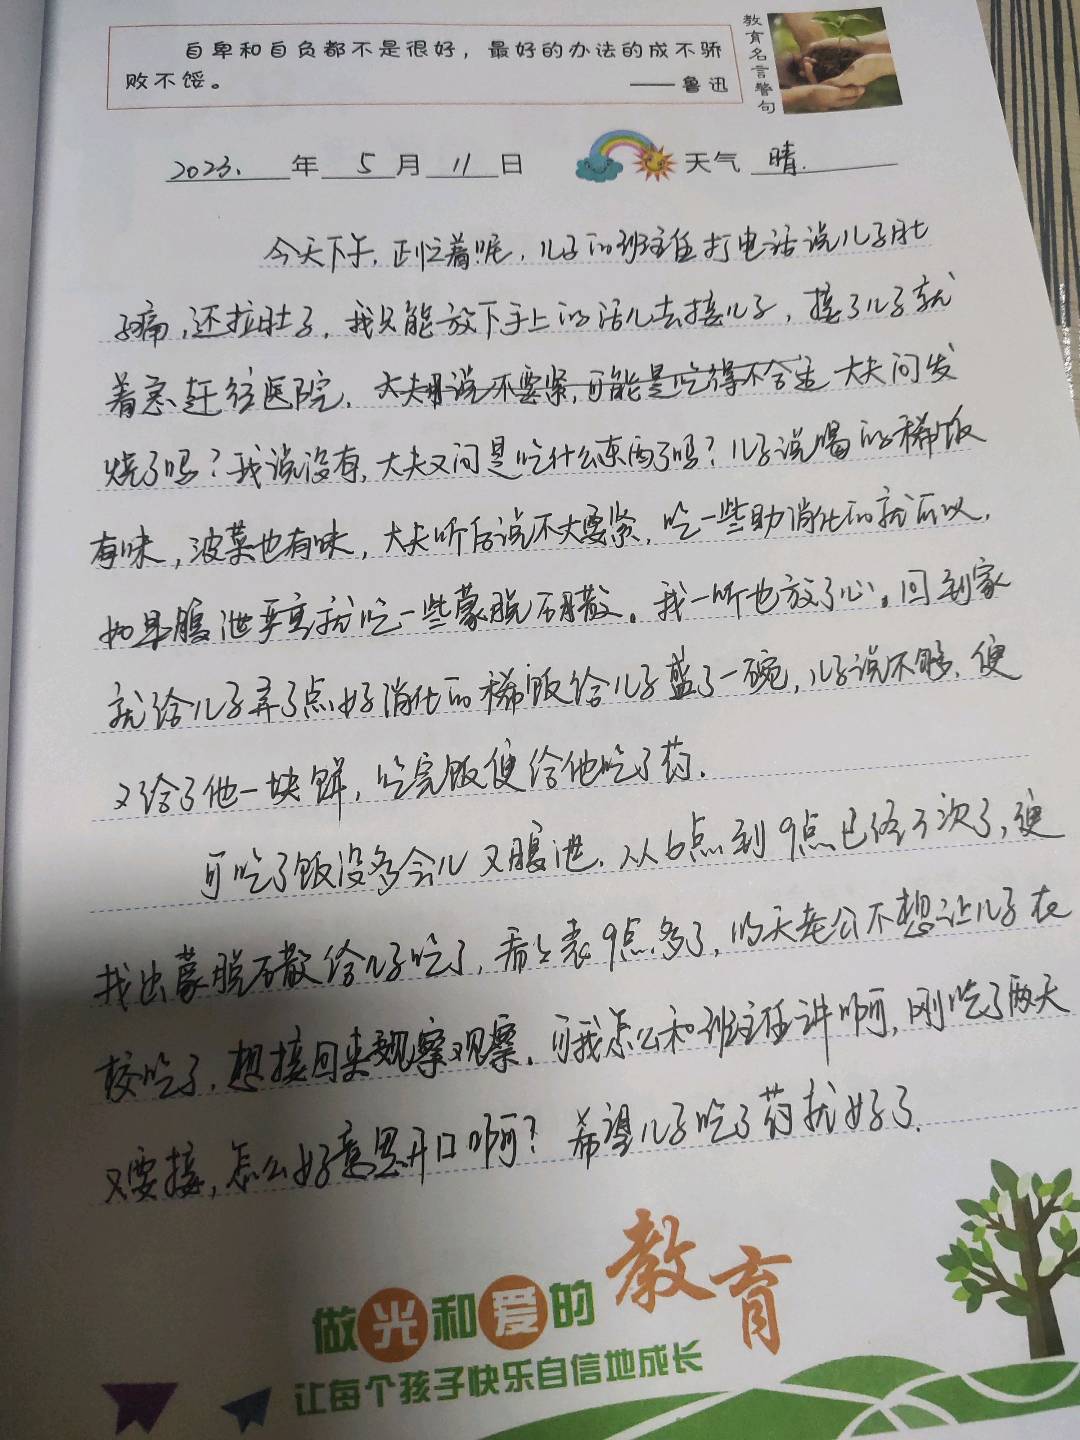 自卑和自负都不是很好，最好的办法的成不骄
败不馁。
——鲁迅
教育名言警句
2023.年5月11日 天气 晴.
今天下午，正忙着呢，儿子的班主任打电话说儿子肚
子痛，还拉肚子，我只能放下手上的活儿去接儿子，接了儿子就
着急赶往医院，大夫说不要紧，可能是吃得不合适 大夫问发
烧了吗？我说没有，大夫又问是吃什么东西了吗？儿子说喝的稀饭
有味，波菜也有味，大夫听后说不大要紧，吃一些助消化的就可以，
如果腹泄严重就吃一些蒙脱石散。我一听也放了心。回到家
就给儿子弄了点好消化的稀饭给儿子盛了一碗，儿子说不够，便
又给了他一块饼，吃完饭便给他吃了药.
可吃了饭没多会儿又腹泄，从6点到9点已经三次了，便
找出蒙脱石散给儿子吃了，看看表9点多了，明天老公不想让儿子在
校吃了，想接回来观察观察，可我怎么和班主任讲啊，刚吃了两天
又要接，怎么好意思开口啊？希望儿子吃了药就好了.
做光和爱的教育
让每个孩子快乐自信地成长